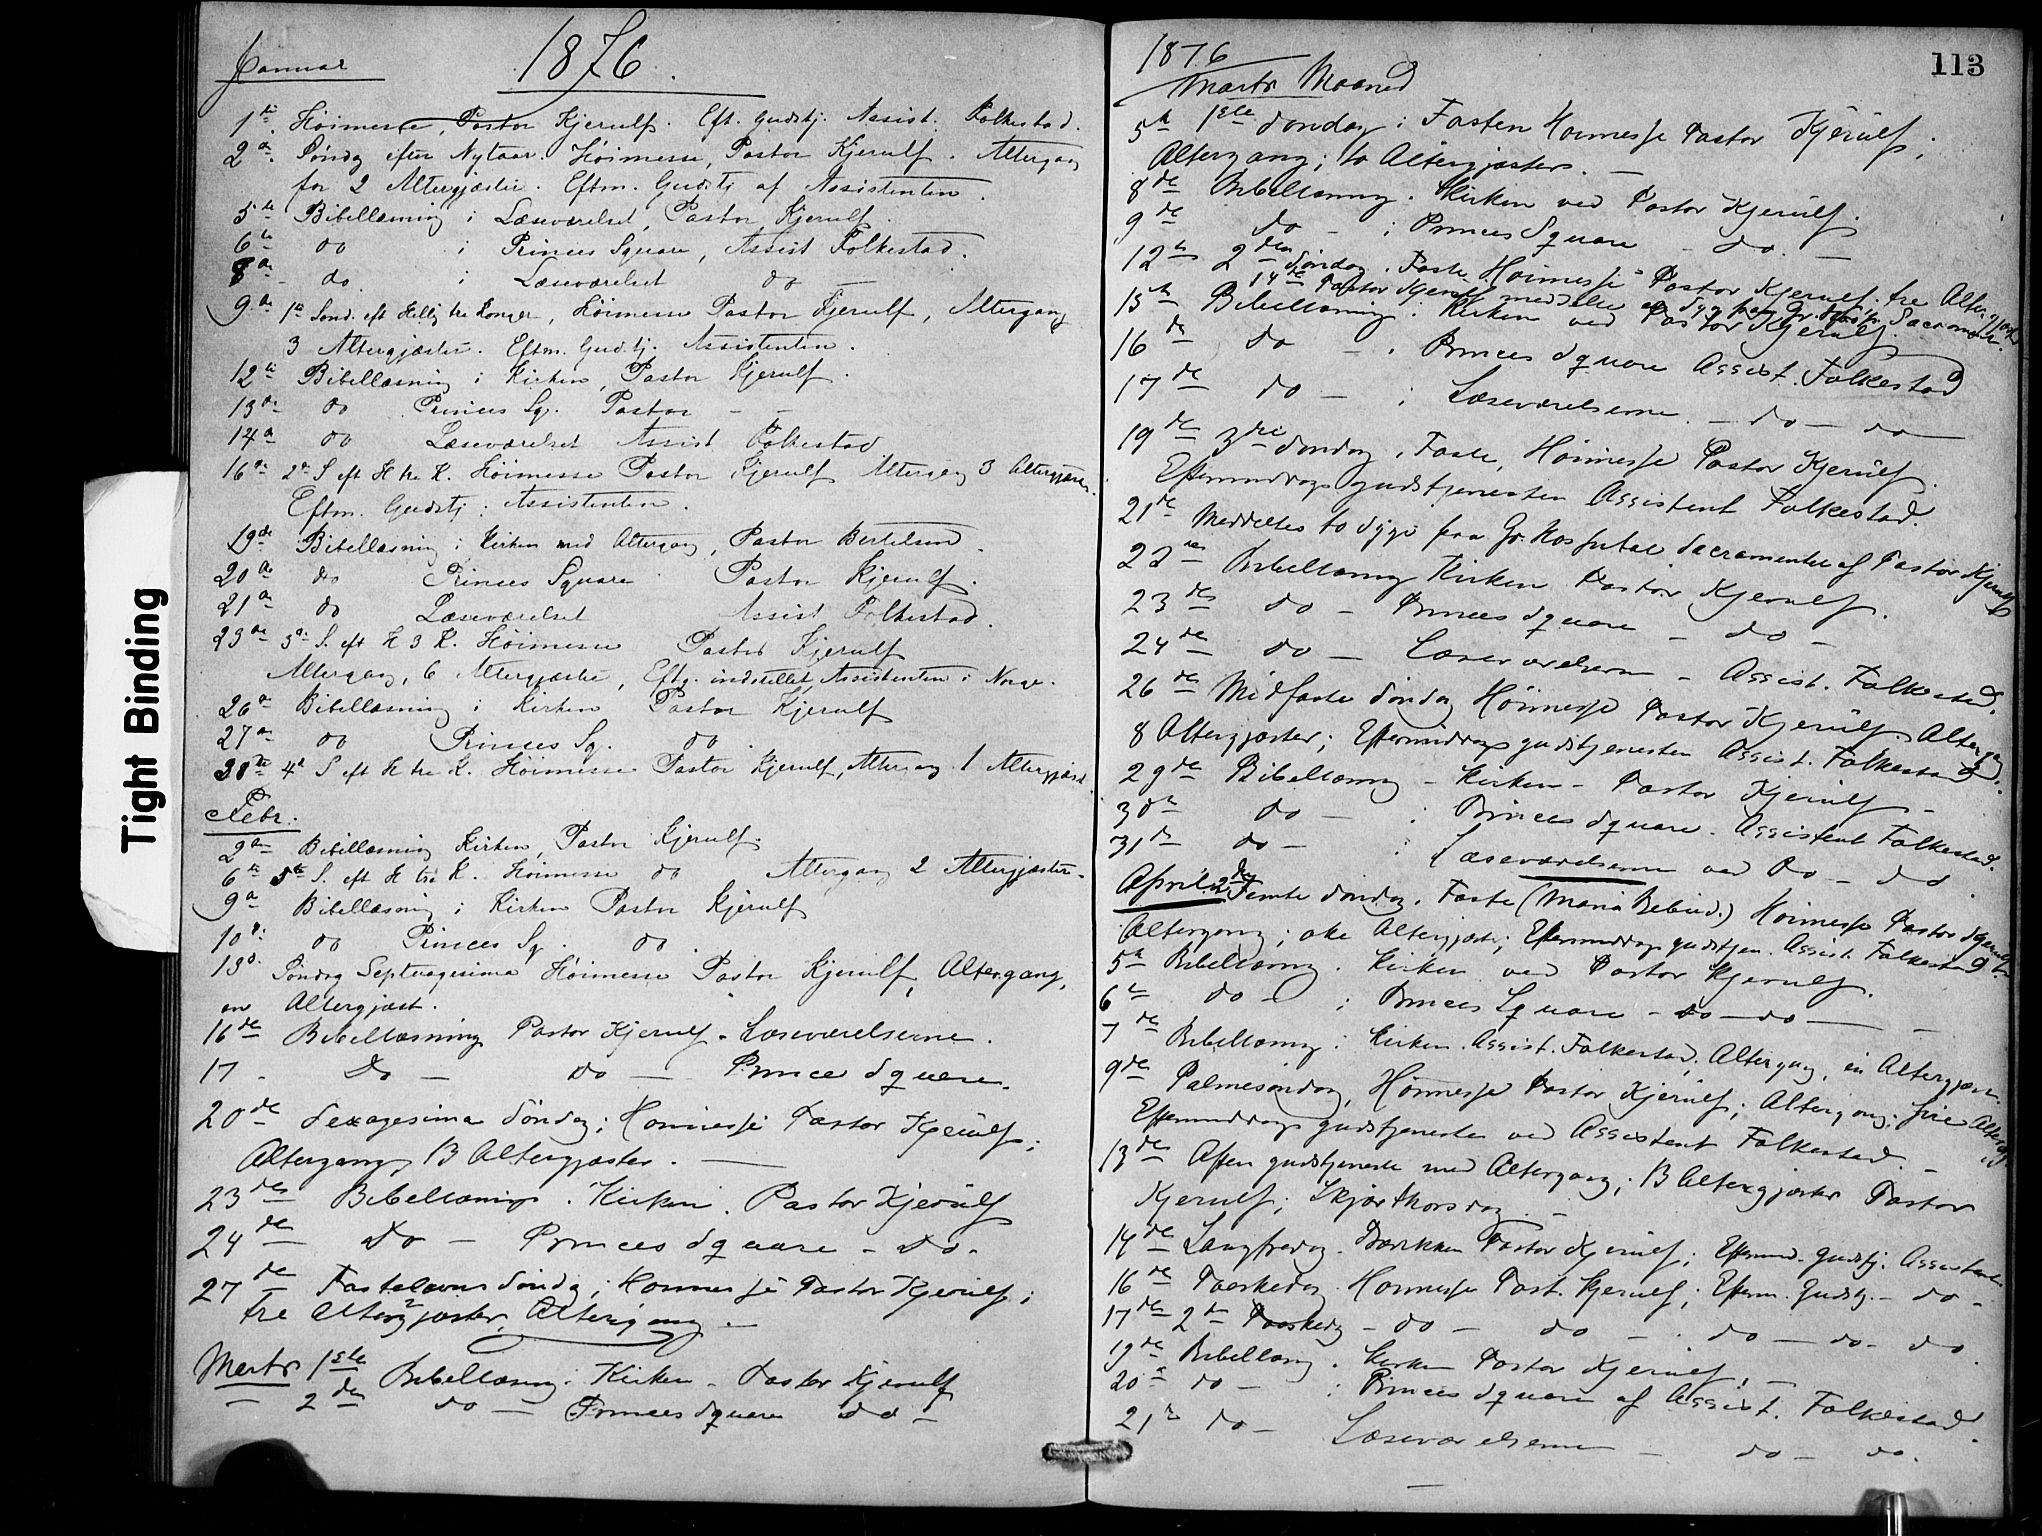 Tight Binding
Januar 1876.
1te Høimesse, Pastor Kjerulf. Eft. Gudstj. Assist. Folkestad.
2de Søndg efter Nytaar. Høimesse, Pastor Kjerulf. Altergang
for 2 Altergjæster. Eftm. Gudstj af Assistenten.
5te Bibellæsning i Læseværelset, Pastor Kjerulf.
6te do i Princes Square, Assist Folkestad.
8de do. i Læseværelset do —
9de 1te Sønd. eft Hellig tre Konger, Høimesse Pastor Kjerulf, Altergang
3 Altergjæster. Eftm. Gudstj. Assistenten.
12te Bibellæsning i Kirken, Pastor Kjerulf.
13de do Princes Sq. Pastor — —
14de do Læseværelset Assist Folkestad
16de 2de S eft H tre K. Høimesse Pastor Kjerulf Altergang 3 Altergjæster.
Eftm. Gudstj: Assistenten.
19de Bibellæsning i Kirken med Altergang, Pastor Bertelsen.
20de do Princes Square Pastor Kjerulf.
21de do Læseværelset Assist Folkestad.
23de 3de S. eft H 3 K. Høimesse Pastor Kjerulf
Altergang, 6 Altergjæster, Eftg. indstillet, Assistenten i Norge.
26de Bibellæsning i Kirken Pastor Kjerulf
27de do Princes Sq. do.
30te 4de S eft H tre K. Høimesse Pastor Kjerulf, Altergang 1 Altergjæst
Febr.
2den Bibellæsning Kirken, Pastor Kjerulf.
6te 5te S. eft H tre K. Høimesse do Altergang 2 Altergjæster.
9de Bibellæsning i Kirken Pastor Kjerulf
10de do Princes Sq. do.
13de Søndag Septuagesima Høimesse Pastor Kjerulf, Altergang,
en Altergjæst.
16de Bibellæsning Pastor Kjerulf. Læseværelserne.
17. Do — Do — Princes Square.
20de Sexagesima Søndag; Høimesse Pastor Kjerulf;
Altergang, 13 Altergjæster. —
23de Bibellæsning i Kirken. Pastor Kjerulf
24de Do — Princes Square — Do.
27de Fastelavns Søndag; Høimesse Pastor Kjerulf;
tre Altergjæster, Altergang. —
Marts 1ste Bibellæsng. i Kirken. Pastor Kjerulf
— 2den do — Princes Square do —
1876 113
Marts Maaned
5te 1ste Søndag i Fasten Høimesse Pastor Kjerulf;
Altergang; to Altergjæster. —
8de Bibellæsng. i Kirken ved Pastor Kjerulf.
9de do — i Princes Square — do. —
12te 2den Søndag i Faste Høimesse Pastor Kjerulf. tre Altergjæster
14de Pastor Kjerulf meddelte en Syg fra Gr. Hosp. Sacrament.
15de Bibellæsning i Kirken ved Pastor Kjerulf.
16de do — i Princes Square Assist. Folkestad
17de do — i Læseværelserne — do — do —
19de 3die Søndag i Faste, Høimesse Pastor Kjerulf.
Eftermiddagsgudstjenesten Assistent Folkestad.
21de Meddeltes to Syge paa Gr. Hospital Sacramentet af Pastor Kjerulf
22de Bibellæsng Kirken Pastor Kjerulf.
23de do — Princes Square — do —
24de do — Læseværelserne — Assist. Folkestad.
26de Midfaste Søndag Høimesse Pastor Kjerulf Altergang
8 Altergjæster; Eftermiddagsgudstjenesten Assist. Folkestad.
29de Bibellæsng — Kirken — Pastor Kjerulf —
30te do — i Princes Square. Assistent Folkestad.
31te do — i Læseværelserne ved Do — do
April 2den Femte Søndag i Faste (Maria Bebud.) Høimesse Pastor Kjerulf
Altergang; otte Altergjæster; Eftermiddagsgudstjen. Assist. Folkestad.
5te Bibellæsng. i Kirken ved Pastor Kjerulf.
6te do — i Princes Square — do — do —
7de Bibellæsng i Kirken. Assist. Folkestad; Altergang, en Altergjæst.
9de Palmesøndag, Høimesse Pastor Kjerulf; Altergang; fire Altergj.
Eftermiddagsgudstjenesten ved Assistent Folkestad. —
13de Aftengudstjeneste med Altergang; 13 Altergjæster Pastor
Kjerulf; Skjærthorsdag. —
14de Langfredag. Pastor Kjerulf; Eftermid. Gudstj. Assistent
16de Paaskedag. Høimesse Past. Kjerulf; Efterm. Gudstj. — do —
17de 2den Paaskedg — do — do — do — do — do.
19de Bibellæsng i Kirken Pastor Kjerulf. —
20de do — i Princes Square af Assist. Folkestad.
21de do — Læseværelserne — do — do.